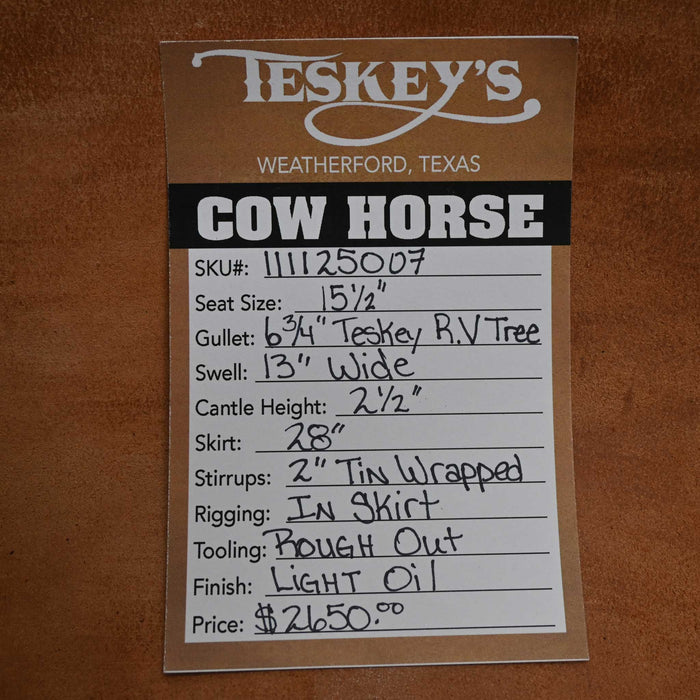 TESKEY'S
WEATHERFORD, TEXAS
COW HORSE
SKU#: 111125007
Seat Size: 15 1/2"
Gullet: 6 3/4" Teskey R.V Tree
Swell: 13" Wide
Cantle Height: 2 1/2"
Skirt: 28"
Stirrups: 2" Tin Wrapped
Rigging: In Skirt
Tooling: Rough Out
Finish: Light Oil
Price: $2650.00